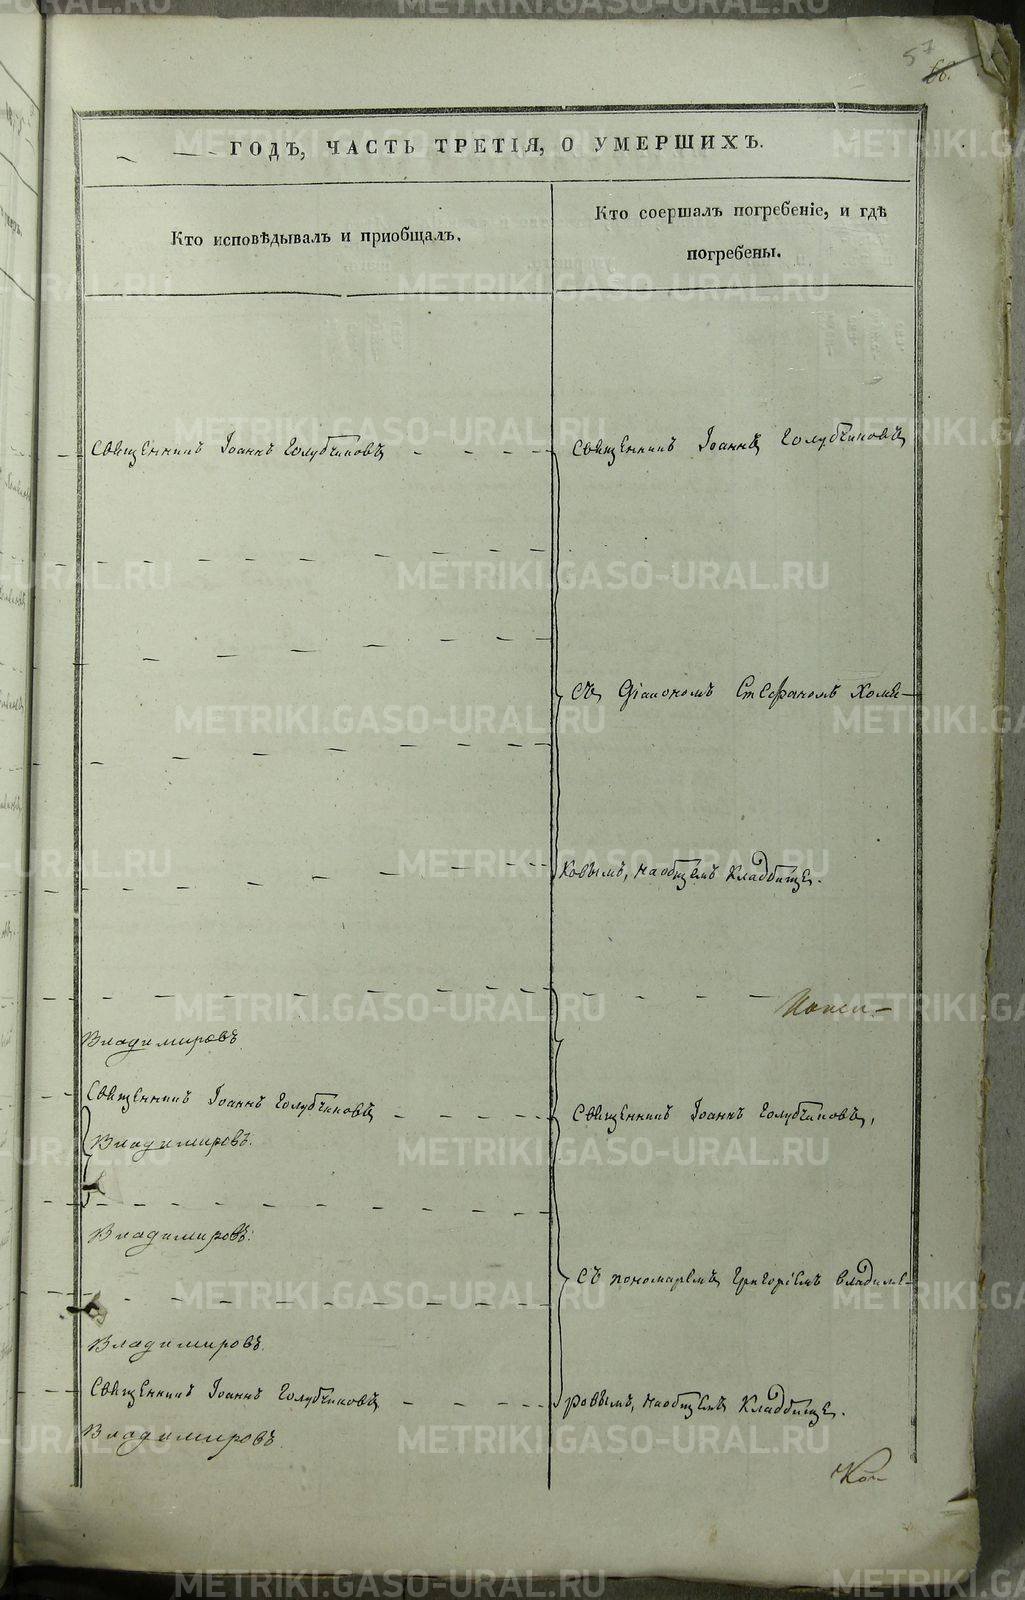 57
66.
ГОДЪ, ЧАСТЬ ТРЕТІЯ, О УМЕРШИХЪ.
Кто исповѣдывалъ и приобщалъ.
Кто соершалъ погребеніе, и гдѣ
погребены.
Священникъ Іоаннъ Голубчиковъ
Священникъ Іоаннъ Голубчиковъ
съ Діакономъ Стефаномъ Хомя-
ковымъ, на общемъ кладбище.
Владимировъ
Священникъ Іоаннъ Голубчиковъ
Священникъ Іоаннъ Голубчиковъ,
Владимировъ.
Владимировъ.
съ пономаремъ Григоріемъ Владими-
Владимировъ.
Священникъ Іоаннъ Голубчиковъ
ровымъ, на общемъ кладбище.
Владимировъ.
METRIKI.GASO-URAL.RU